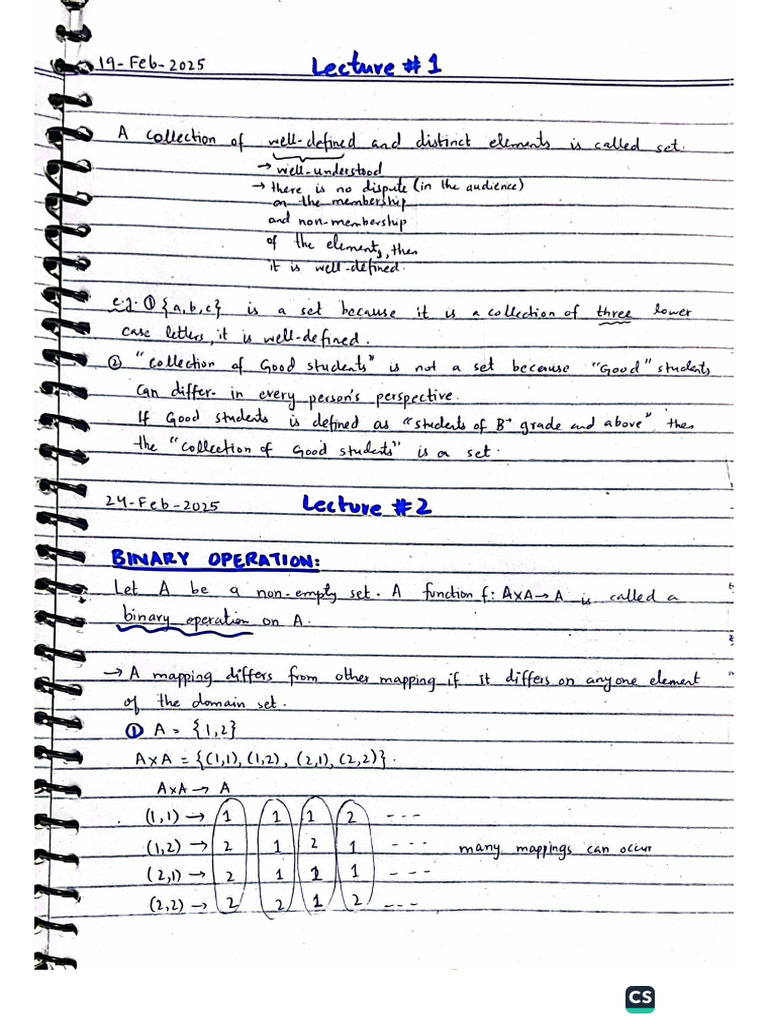 19-Feb-2025 Lecture #1
A collection of well-defined and distinct elements is called set.
→ well-understood
→ there is no dispute (in the audience)
on the membership
and non-membership
of the elements, then
it is well-defined.
e.g. ① {a,b,c} is a set because it is a collection of three lower
case letters, it is well-defined.
② "collection of Good students" is not a set because "Good" students
can differ in every person's perspective.
If Good students is defined as "students of B⁺ grade and above" then
the "collection of Good students" is a set.
24-Feb-2025 Lecture #2
BINARY OPERATION:
Let A be a non-empty set. A function f: A×A→A is called a
binary operation on A.
→ A mapping differs from other mapping if it differs on anyone element
of the domain set.
① A = {1,2}
A×A = {(1,1), (1,2), (2,1), (2,2)}.
A×A → A
(1,1) → 1 1 1 2 ---
(1,2) → 2 1 2 1 --- many mappings can occur
(2,1) → 2 1 1 1 ---
(2,2) → 2 2 1 2 ---
CS